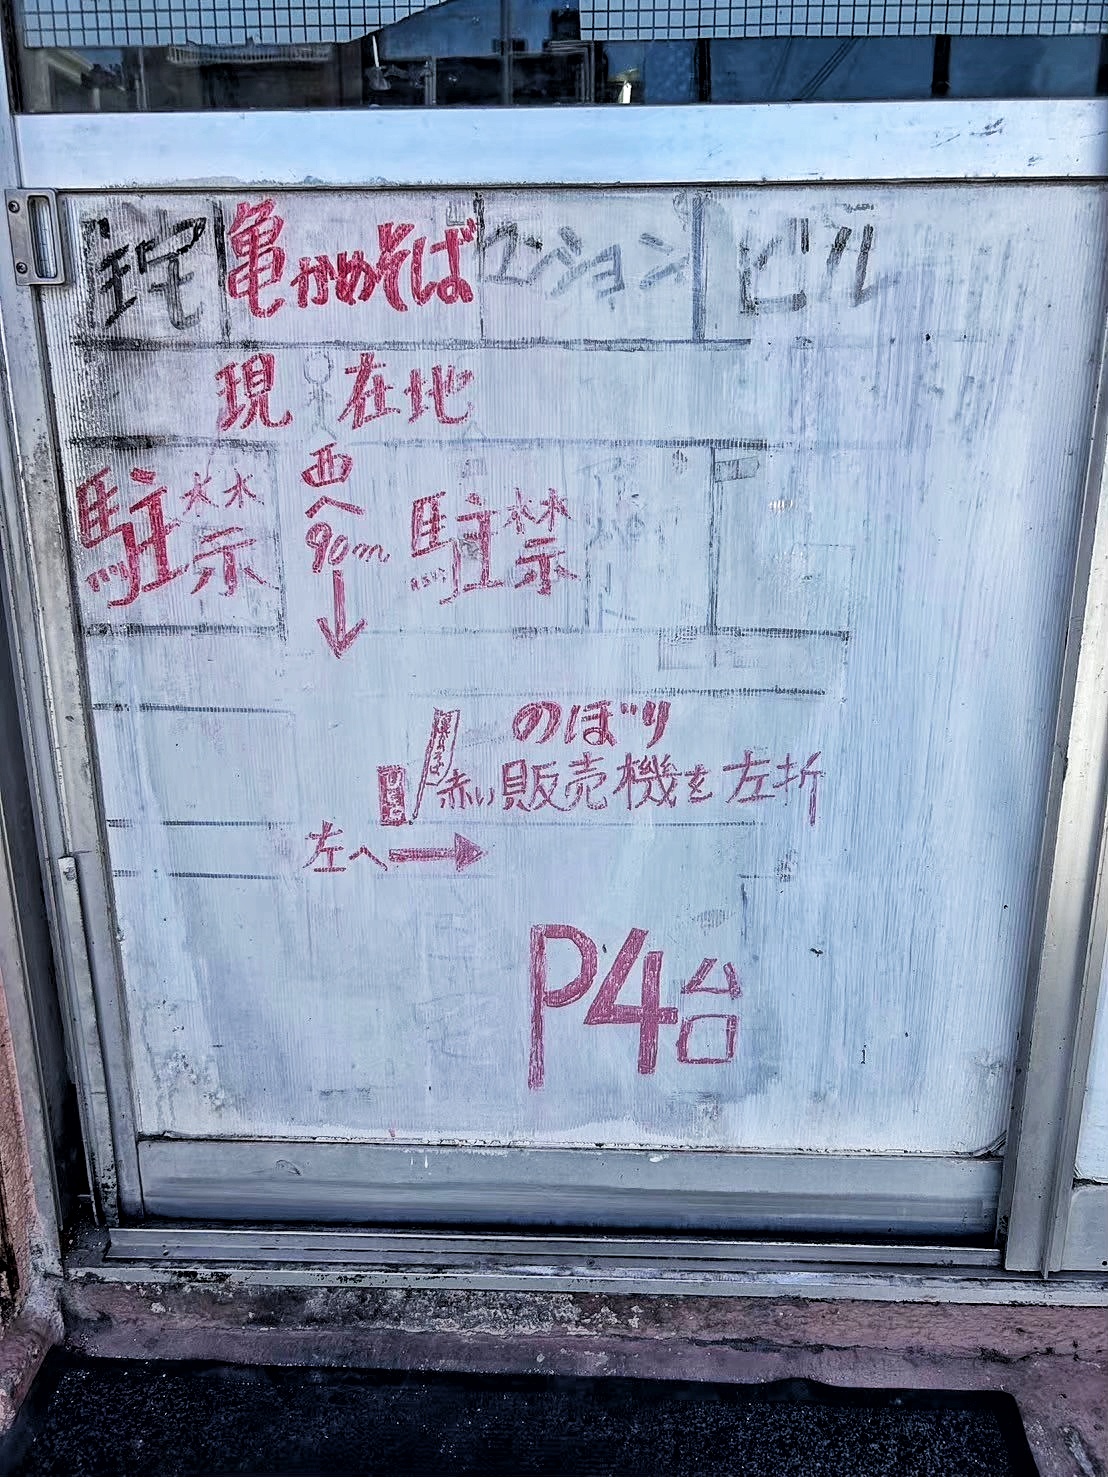 住宅 亀かめそば マンション ビル
現在地
駐禁 西へ 駐禁
90m
のぼり
赤い販売機を左折
左へ→
P4台